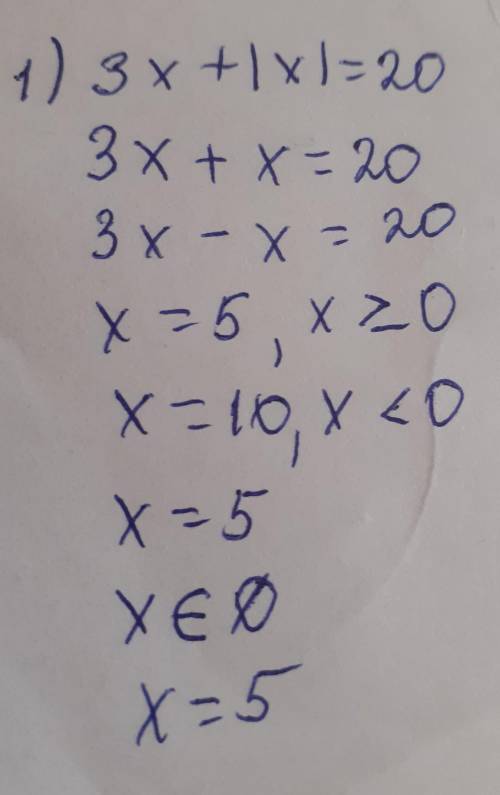 1) 3x + |x| = 20
3x + x = 20
3x - x = 20
x = 5, x ≥ 0
x = 10, x < 0
x = 5
x ∈ Ø
x = 5